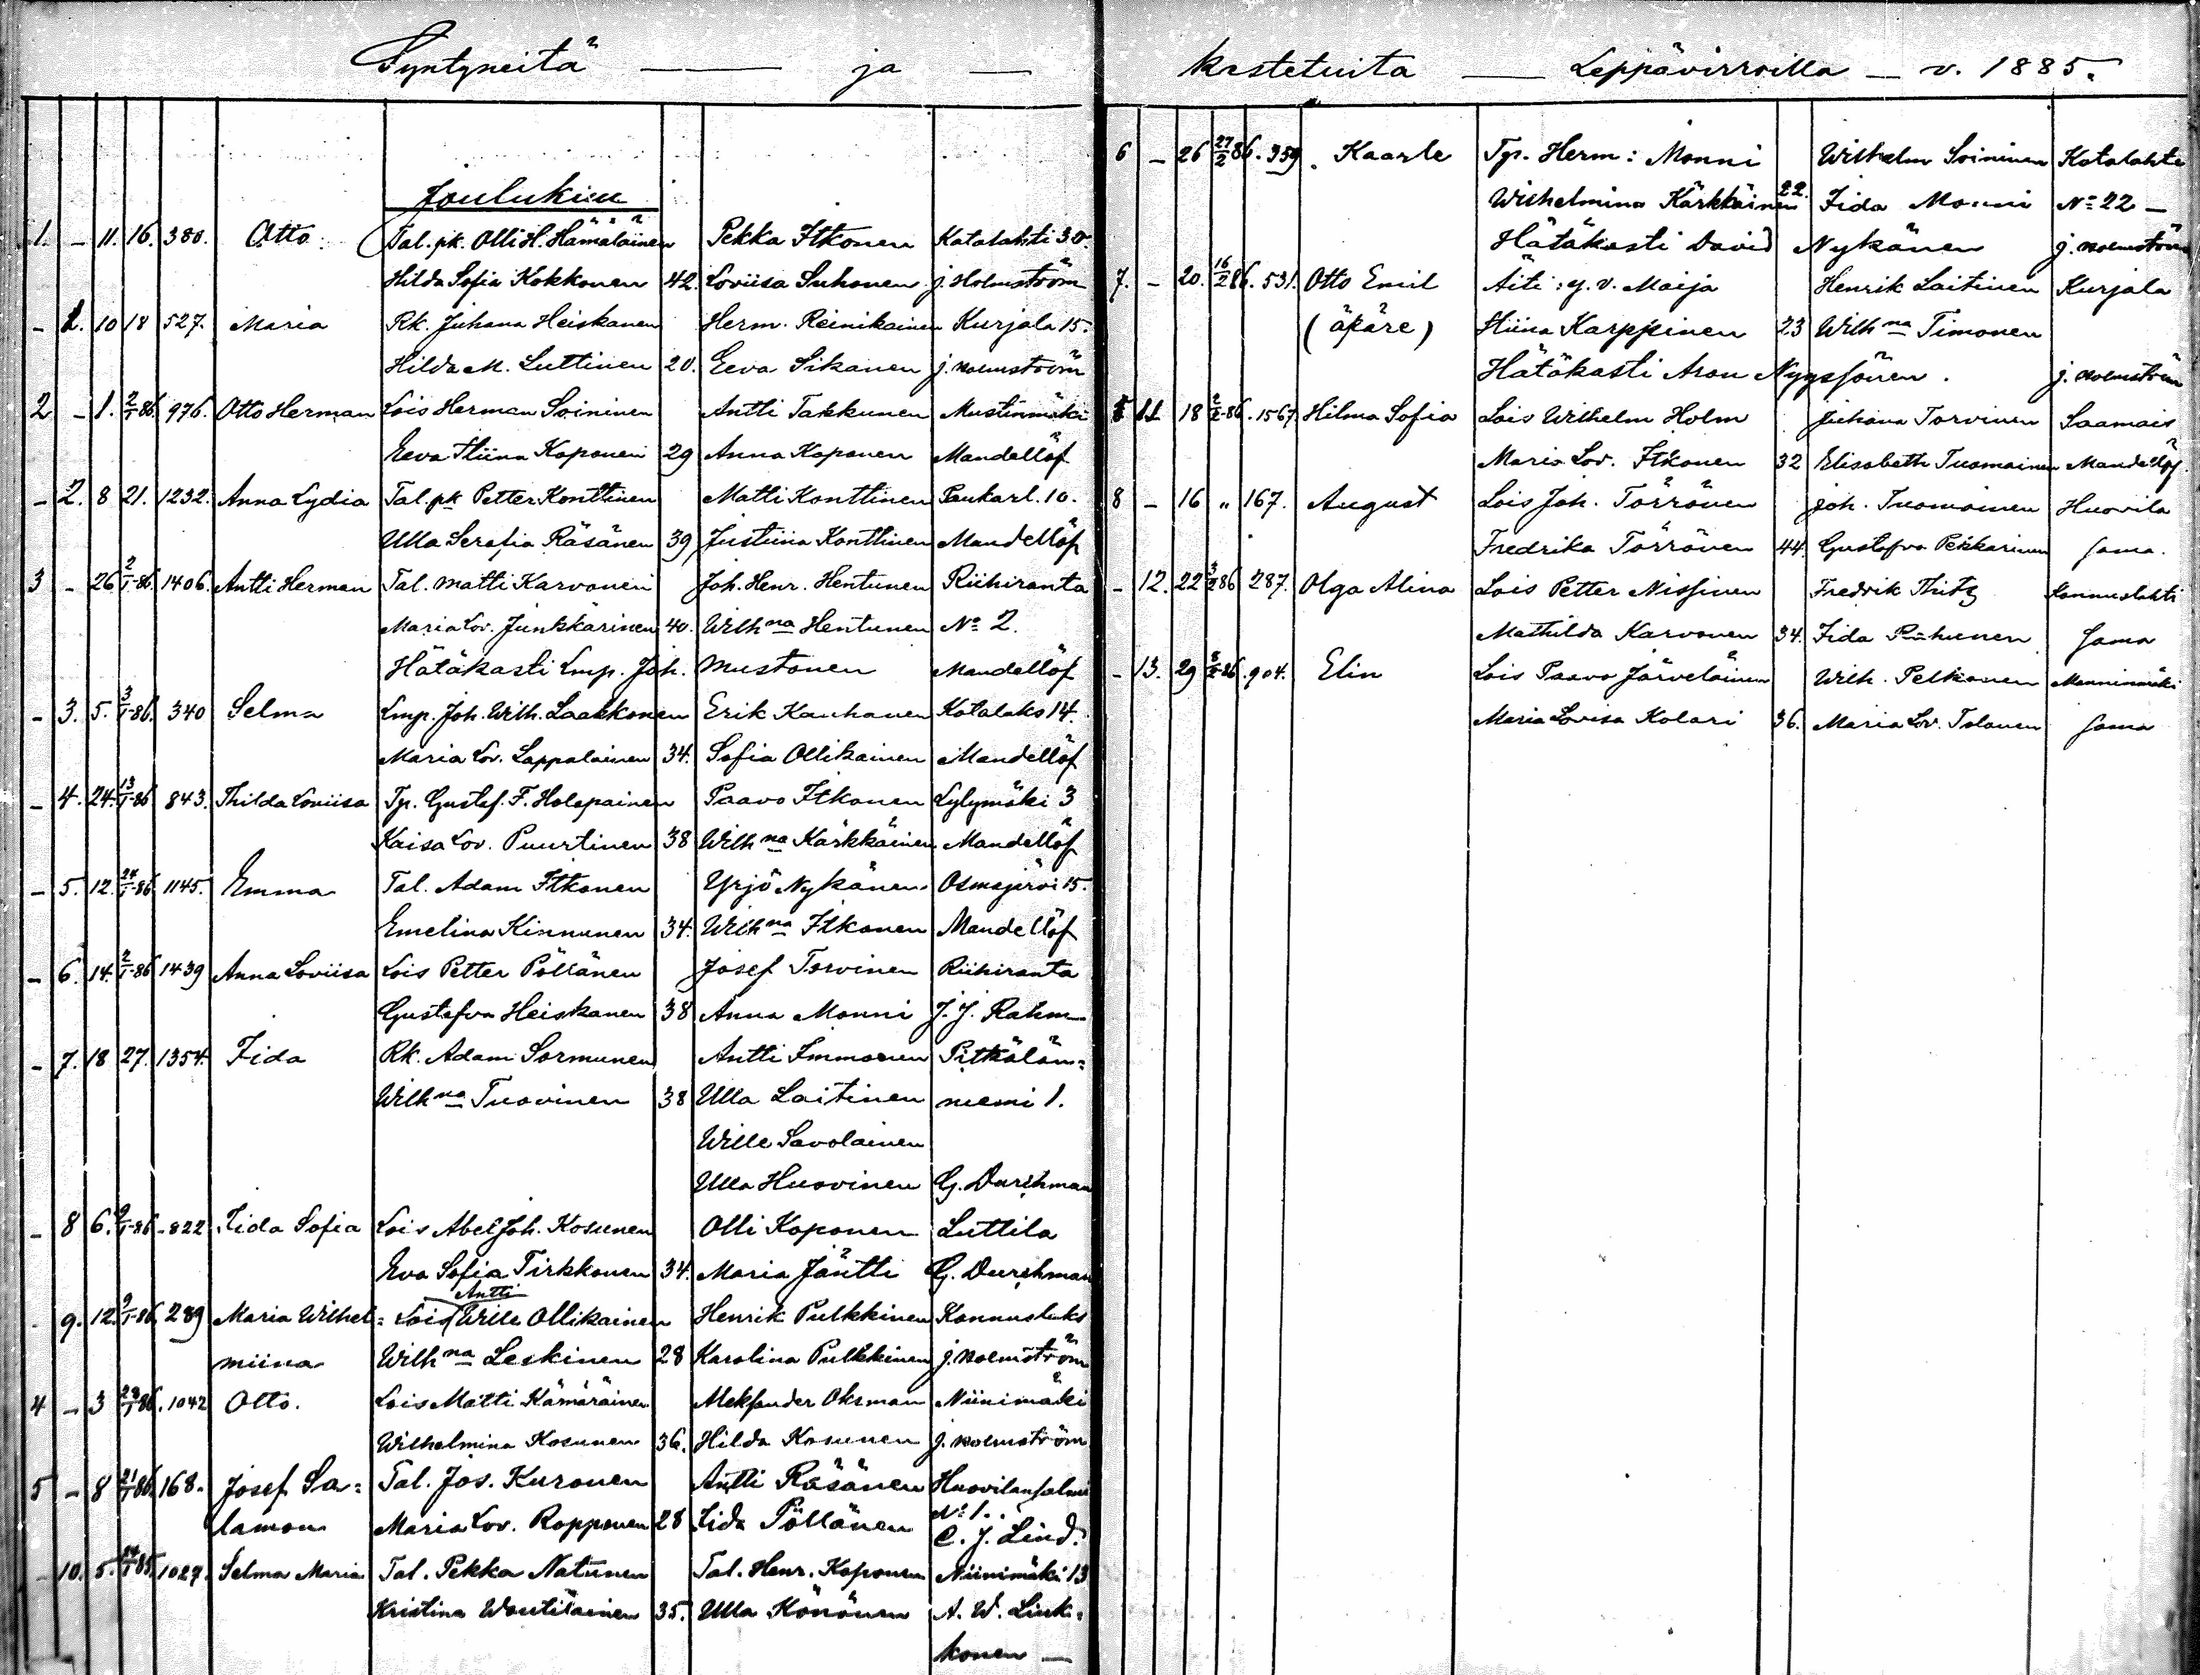 Syntyneitä — ja — kastetuita — Leppävirroilla — v. 1885.
Joulukuu
1. – 11. 16. 380. Otto. Tal. pk. Olli H. Hämäläinen Pekka Itkonen Kotalahti 30.
Hilda Sofia Kokkonen 42. Loviisa Suhonen J. Holmström
– 1. 10 18 527. Maria Rk. Juhana Heiskanen Herm. Reinikainen Kurjala 15.
Hilda M. Luttinen 20. Eeva Sikanen J. Holmström
2 – 1. 2/1-86. 976. Otto Herman Lois Herman Soininen Antti Takkunen Mustinmäki
Eeva Stiina Koponen 29 Anna Koponen Mandellöf
– 2. 8 21. 1232. Anna Lydia Tal. pk Petter Konttinen Matti Konttinen Paukarl. 10.
Ulla Serafia Räsänen 39 Justiina Konttinen Mandellöf
3 – 26 2/1-86. 1406. Antti Herman Tal. Matti Karvonen Joh. Henr. Hentunen Riihiranta
Maria Lov. Junkkarinen 40. Wilhna Hentunen No 2.
Hätäkasti Lmp. Joh. Mustonen Mandellöf
– 3. 5. 3/1-86. 340 Selma Lmp. Joh. Wilh. Laakkonen Erik Kauhanen Kotalaks 14.
Maria Lov. Lappalainen 34. Sofia Ollikainen Mandellöf
– 4. 24. 13/1-86 843. Thilda Loviisa Tp. Gustaf. F. Holopainen Paavo Itkonen Lylymäki 3
Kaisa Lov. Puurtinen 38 Wilhna Kärkkäinen Mandellöf
– 5. 12. 24/1-86 1145. Emma Tal. Adam Itkonen Yrjö Nykänen Osmajärvi 15.
Emelina Kinnunen 34. Wilhna Itkonen Mandellöf
– 6. 14. 2/1-86 1439 Anna Loviisa Lois Petter Pöllänen Josef Torvinen Riihiranta
Gustafva Heiskanen 38 Anna Monni J. J. Rahm
– 7. 18 27. 1354. Iida Rk. Adam Sormunen Antti Immonen Pitkälän=
Wilhna Tuovinen 38 Ulla Laitinen niemi 1.
Wille Savolainen
Ulla Huovinen G. Durchman
– 8 6. 9/1-86 822 Iida Sofia Lois Abel Joh. Kosunen Olli Koponen Luttila
Eva Sofia Tirkkonen 34. Maria Jäntti G. Durchman
Antti
– 9. 12. 9/1-86. 289 Maria Wilhel= Lois Wille Ollikainen Henrik Pulkkinen Konnuslaks
miina Wilhna Leskinen 28 Karolina Pulkkinen J. Holmström
4 – 3 23/1 86. 1042 Otto. Lois Matti Kämäräinen Aleksander Oksman Niinimäki
Wilhelmina Kosunen 36. Hilda Kosunen J. Holmström
5 – 8 21/1 86. 168. Josef Sa= Tal. Jos. Kuronen Antti Räsänen Huovilansalmi
lamon Maria Lov. Ropponen 28 Iida Pöllänen No 1. C. J. Lind.
– 10. 5. 1027. Selma Maria Tal. Pekka Natunen Tal. Henr. Koponen Niinimäki 13
Kristina Woutilainen 35. Ulla Könönen A. W. Link=
konen —
6 – 26 27/2 86. 359. Kaarle Tp. Herm: Monni Wilhelm Soininen Kotalahti
Wilhelmina Kärkkäinen 22. Iida Monni No 22 –
Hätäkasti David Nykänen J. Holmström
7. – 20. 16/2 86. 531. Otto Emil Äiti: y. v. Maija Henrik Laitinen Kurjala
(äpäre) Stiina Karppinen 23 Wilhna Timonen
Hätäkasti Aron Nyyssönen. J. Holmström
11 18 2/2-86. 1567. Hilma Sofia Lois Wilhelm Holm Juhana Torvinen Saamais
Maria Lov. Itkonen 32 Elisabeth Tuomainen Mandellöf.
8 – 16 „ 167. August Lois Joh. Törrönen Joh. Tuomainen Huovila
Fredrika Törrönen 44. Gustafva Pekkarinen sama.
– 12. 22 3/2 86 287. Olga Alina Lois Petter Nissinen Fredrik Konnuslahti
Mathilda Karvonen 34. Iida sama
– 13. 29 8/2-86. 904. Elin Lois Paavo Järveläinen Wilh. Pelkonen Manninmäki
Maria Lovisa Kolari 36. Maria Lov. Tolonen sama